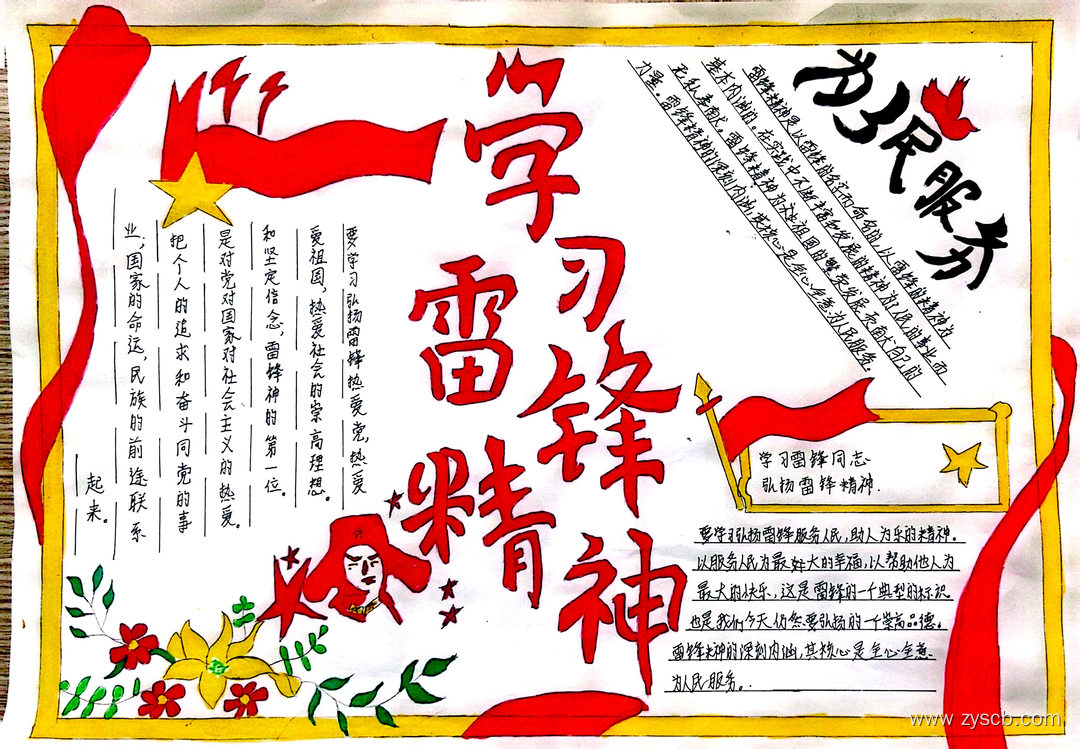 学习
雷锋
精神
为人民服务
雷锋精神是以雷锋的名字而命名的,以雷锋的精神为
基本内涵的。在实践中不断丰富和发展的精神,为人民的事业而
无私奉献。雷锋精神为祖国的繁荣发展而献出自己的
力量。雷锋精神的深刻内涵,其核心是全心全意为人民服务。
要学习弘扬雷锋热爱党,热爱
爱祖国,热爱社会的崇高理想。
和坚定信念,雷锋神的第一位。
是对党对国家对社会主义的热爱。
把个人的追求和奋斗同党的事
业,国家的命运,民族的前途联系
起来。
学习雷锋同志
弘扬雷锋精神.
要学习弘扬雷锋服务人民,助人为乐的精神。
以服务人民为最好大的幸福,以帮助他人为
最大的快乐,这是雷锋的一个典型的标识
也是我们今天仍然要弘扬的一个崇高品德。
雷锋精神的深刻内涵,其核心是全心全意
为人民服务。
www.zyscb.com